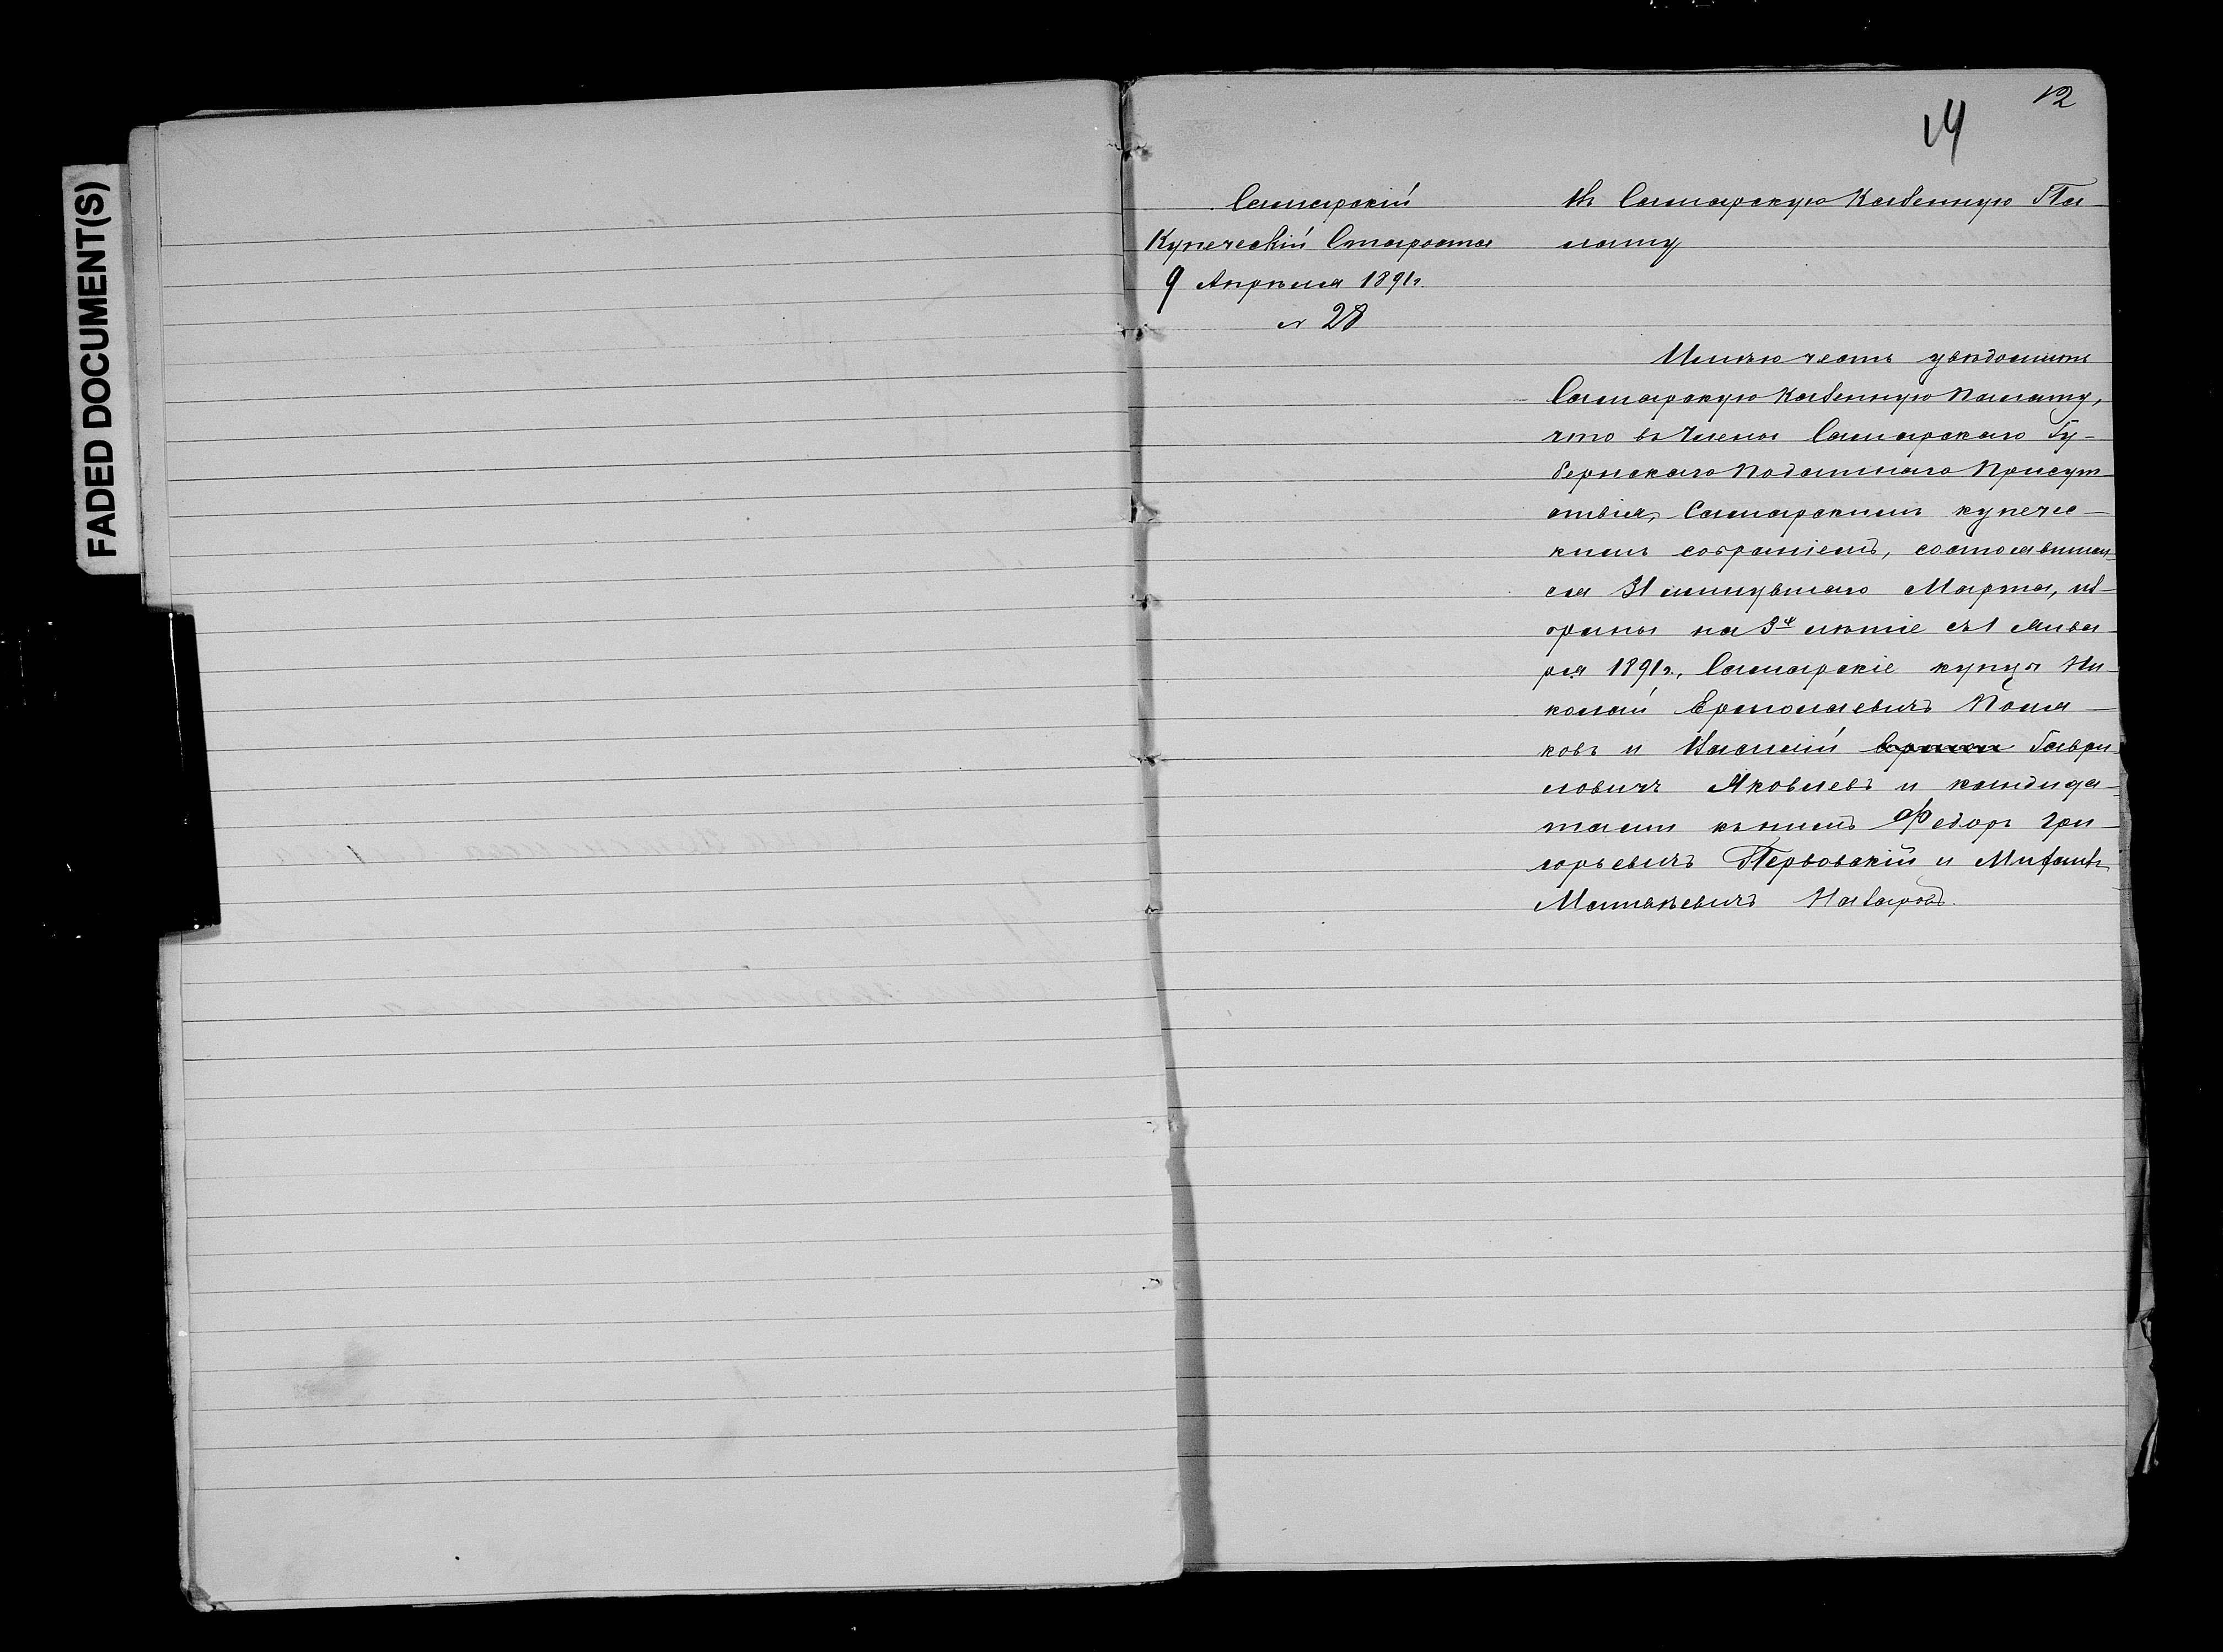 FADED DOCUMENT(S)
12
14
Самарскій
Купеческій Староста
9 Апрѣля 1891г.
№ 28
Въ Самарскую Казенную Па-
лату
Имѣю честь увѣдомить
Самарскую Казенную Палату,
что въ Члены Самарскаго Гу-
бернскаго Податнаго Присут
ствія, Самарскимъ купече-
кимъ собраніемъ, состоявшим
ся 31 минувшаго Марта, из-
браны на 3х лѣтіе съ 1 Янва
ря 1891г., Самарскіе купцы Ни-
колай Ермолаевичъ Поля-
ковъ и Василій Гаври-
ловичъ Яковлевъ и кандида-
тами къ нимъ Федоръ Гри-
горьевичъ Перовскій и Михаилъ
Матвѣевичъ Назаровъ.